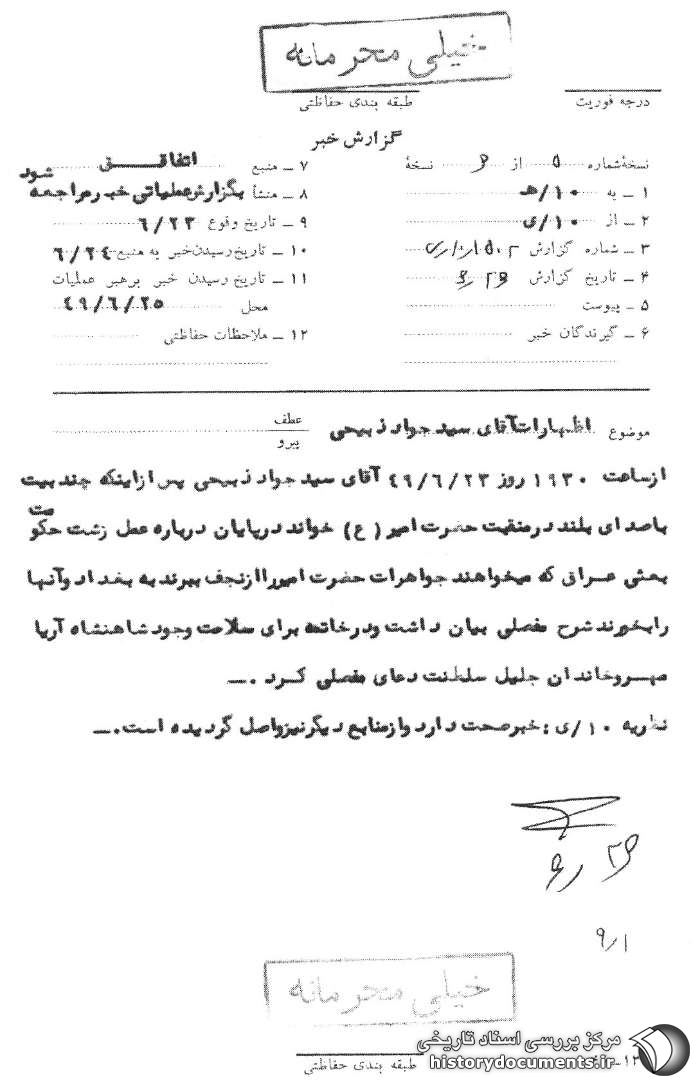 خیلی محرمانه
درجه فوریت
طبقه بندی حفاظتی
گزارش خبر
نسخه شماره ۵ از ۶ نسخهٔ
۱ ــ به ۱۰/هـ
۲ ــ از ۱۰/ی
۳ ــ شماره گزارش
۴ ــ تاریخ گزارش
۵ ــ پیوست
۶ ــ گیرندگان خبر
۷ ــ منبع اتفاقــــق
شود
۸ ــ منشأ بگزارش عملیاتی خبر مراجعه
۹ ــ تاریخ وقوع ۶/۲۳
۱۰ ــ تاریخ رسیدن خبر به منبع ۶/۲۴
۱۱ ــ تاریخ رسیدن خبر برهبر عملیات
محل ۴۹/۶/۲۵
۱۲ ــ ملاحظات حفاظتی
موضوع اظهارات آقای سید جواد ذبیحی
عطف
پیرو
از ساعت ۱۹۳۰ روز ۴۹/۶/۲۳ آقای سید جواد ذبیحی پس از اینکه چند بیت
با صدای بلند در منقبت حضرت امیر (ع) خواند در پایان درباره عمل زشت حکو
مت
بعثی عراق که میخواهند جواهرات حضرت امیر را از نجف ببرند به بغداد و آنها
را بخورند شرح مفصلی بیان داشت و در خاتمه برای سلامت وجود شاهنشاه آریا
مهــر و خاندان جلیل سلطنت دعای مفصلی کــرد .ــ
نظریه ۱۰/ی : خبر صحت دارد و از منابع دیگر نیز واصل گردیده است.ــ
۹٫۱
خیلی محرمانه
طبقه بندی حفاظتی
مرکز بررسی اسناد تاریخی
historydocuments.ir